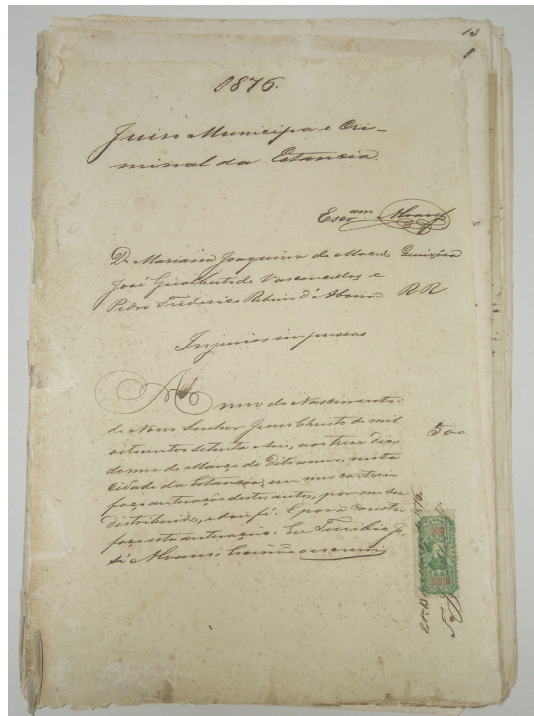 13
1
1876.
Juiso Municipal e Cri-
minal da Estancia.
Escram Alvares
D. Marianna Joaquina de Macedo Queixosa
José Gualberto de Vasconcellos e
Pedro Frederico Ribeiro d'
RR
Injurias impressas
Anno do Nascimento
de Nosso Senhor Jesus Christo de mil
oitocentos setenta e seis, aos treze dias
do mez de Março do dito anno, nesta
cidade da Estancia, em meu cartorio
faço autuação destes autos, por me ser
distribuido, e dou fé. E para constar
faço esta autuação. Eu Turibio Jo-
sé Alvares Escrivão o escrevi
300
200